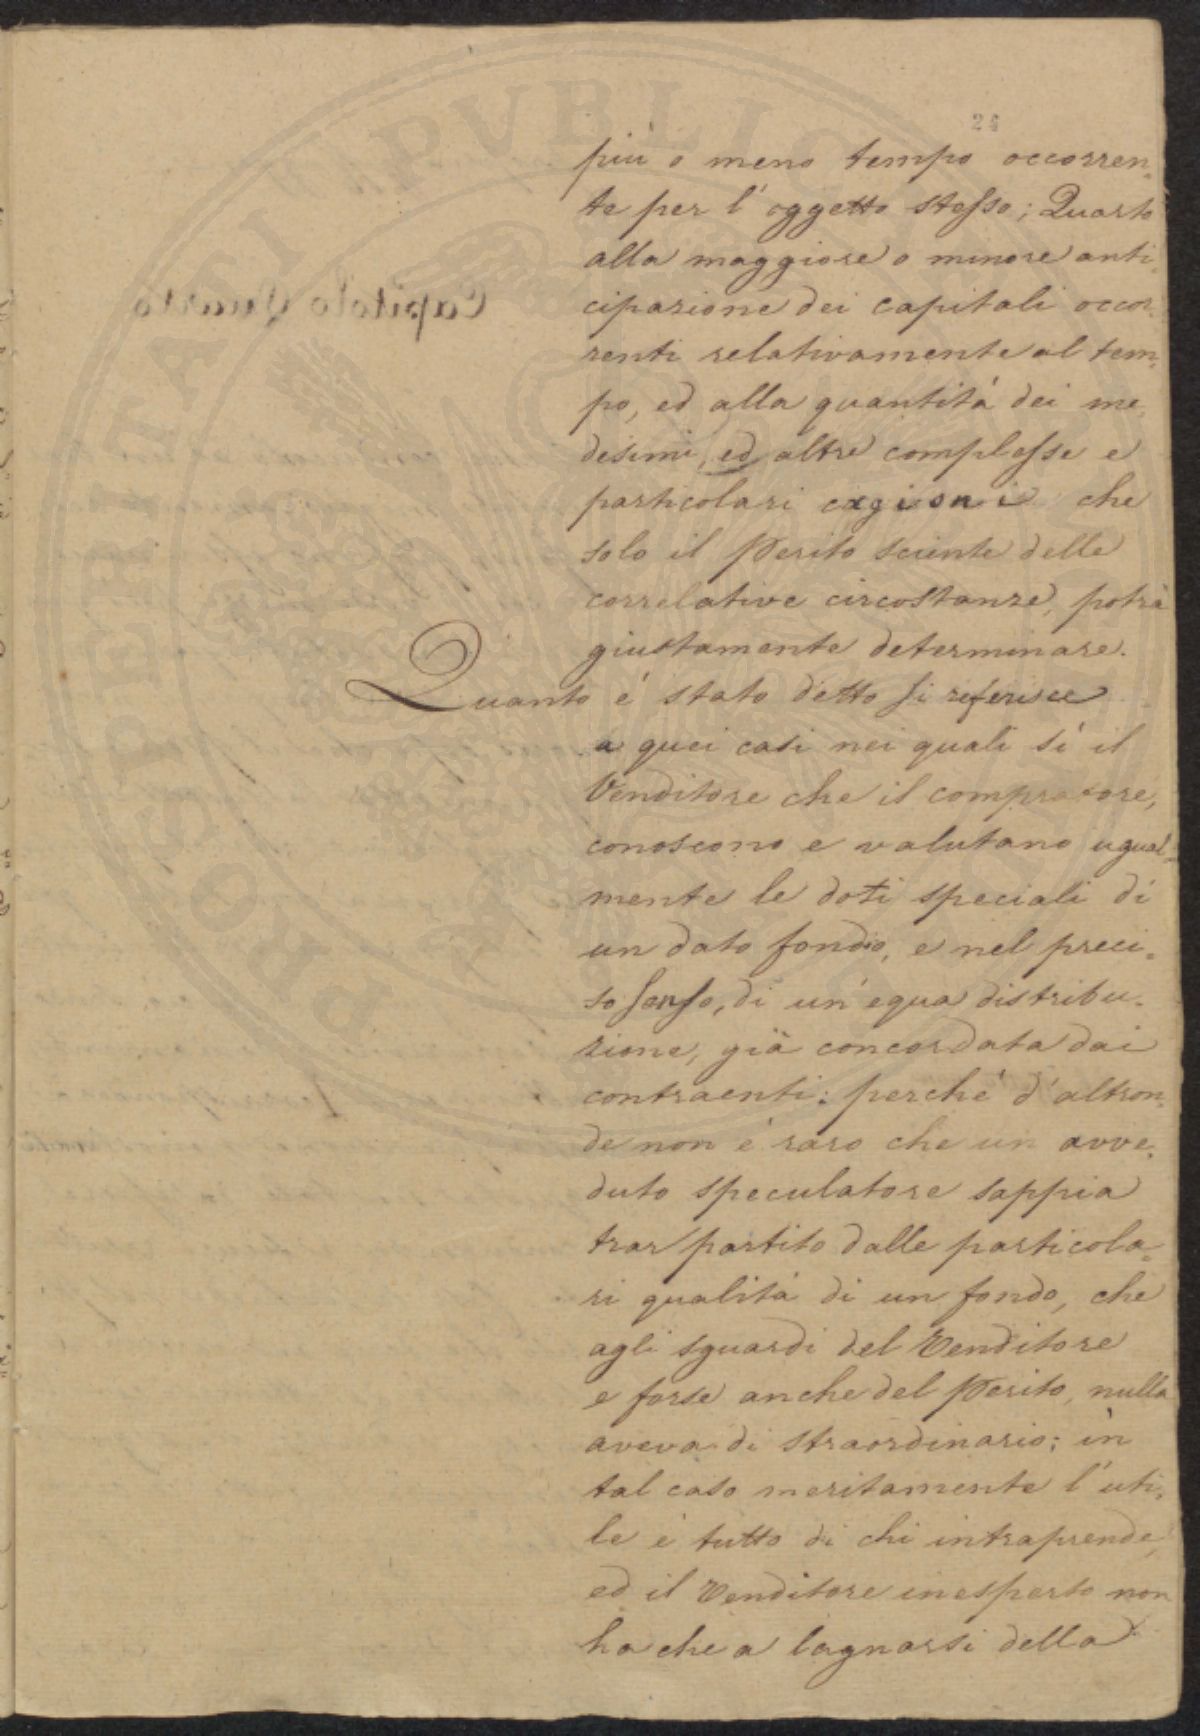 24
più o meno tempo occorren-
te per l'oggetto stesso; Quarto
alla maggiore o minore anti-
cipazione dei capitali occor-
renti relativamente al tem-
po, ed alla quantità dei me
desimi, ed altre complesse e
particolari cagioni che
solo il Perito sciente delle
correlative circostanze, potrà
giustamente determinare.
Quanto é stato detto si riferisce
a quei casi nei quali sì il
Venditore che il compratore,
conoscono e valutano ugual-
mente le doti speciali di
un dato fondo, e nel preci-
so senso, di un'equa distribu-
zione, già concordata dai
contraenti: perché d'altron-
de non é raro che un avve-
duto speculatore sappia
trar partito dalle particola-
ri qualità di un fondo, che
agli sguardi del Venditore
e forse anche del Perito, nulla
aveva di straordinario; in
tal caso meritamente l'uti-
le é tutto di chi intraprende,
ed il Venditore inesperto non
ha che a lagnarsi della
Capitolo Quarto
PUBLIC